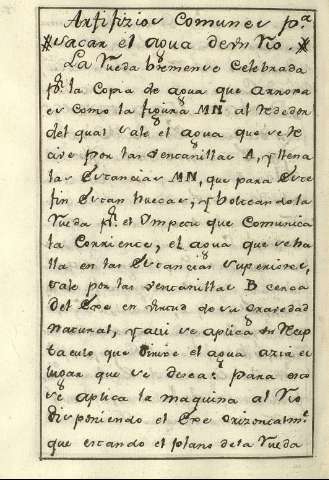 Artifizios Comunes pª
sacar el agua de un Rio.
La Rueda bremense Celebrada
pʳ. la Copia de agua que arroxa
es como la figura MN al rededor
del qual sale el agua que se re
cive por las ventanillas A, y llena
las Estancias MN, que para este
fin Estan huecas, y bolteando la
Rueda pʳ. el Ympetu que Comunica
la Corriente, el agua que se ha
lla en las Estancias superiores,
sale por las ventanillas B cerca
Del Exe en virtud de su gravedad
Natural, y aqui se aplica un Recep
taculo que dirixe el agua azia el
lugar que se desea: para esto
se aplica la maquina al Rio
disponiendo el Exe orizontalmᵉ.
que estando el plano de la Rueda